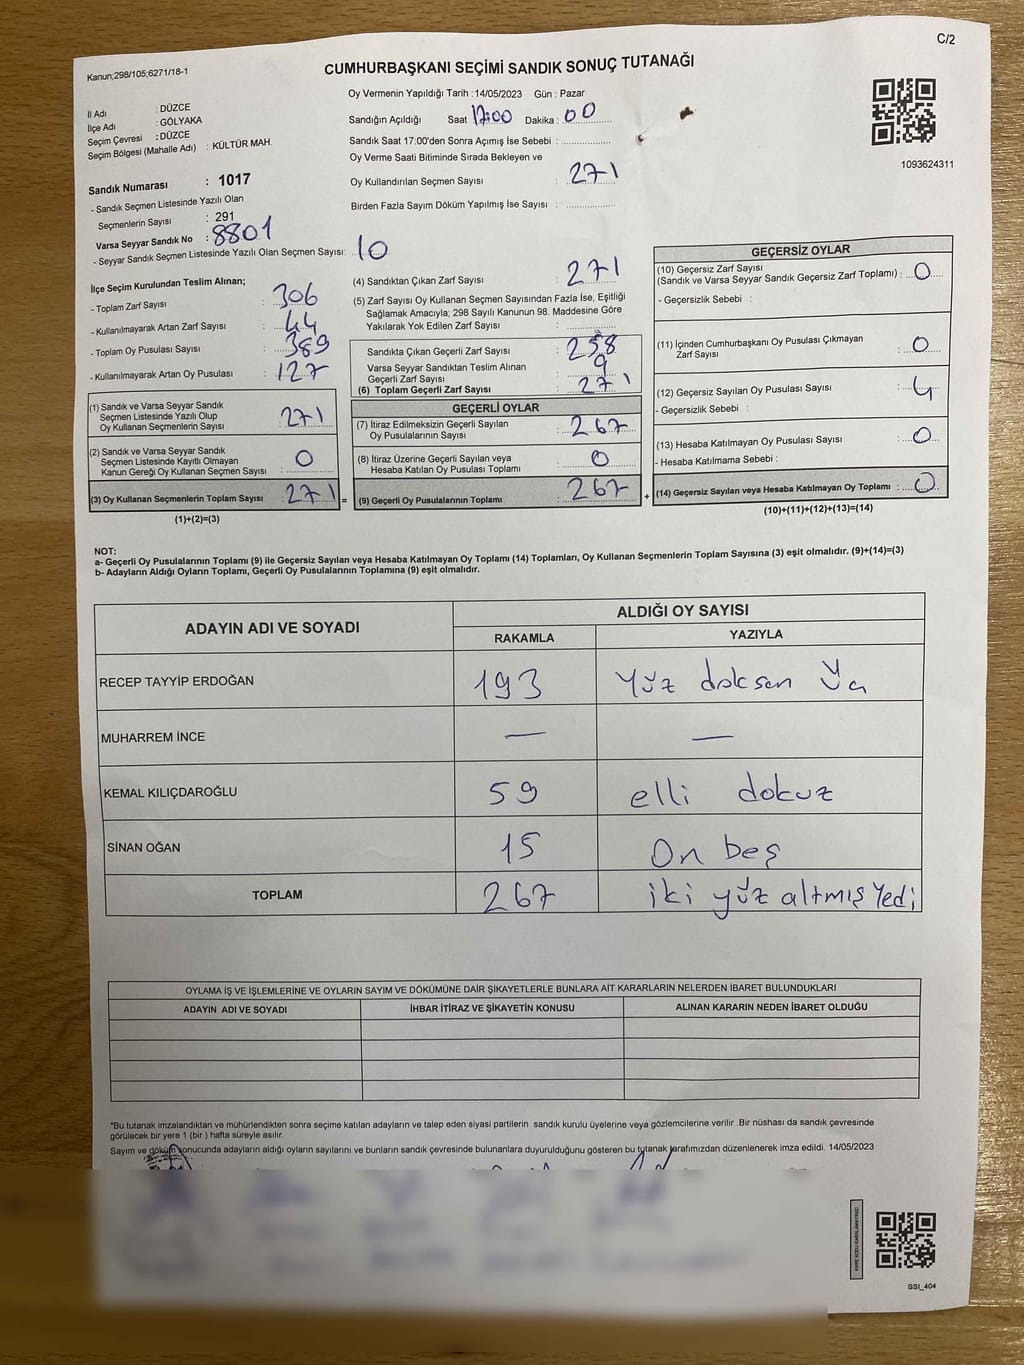 C/2
Kanun;298/105;6271/18-1
CUMHURBAŞKANI SEÇİMİ SANDIK SONUÇ TUTANAĞI
1093624311
İl Adı : DÜZCE
İlçe Adı : GÖLYAKA
Seçim Çevresi : DÜZCE
Seçim Bölgesi (Mahalle Adı) : KÜLTÜR MAH.
Sandık Numarası : 1017
- Sandık Seçmen Listesinde Yazılı Olan
Seçmenlerin Sayısı : 291
Varsa Seyyar Sandık No : 8801
- Seyyar Sandık Seçmen Listesinde Yazılı Olan Seçmen Sayısı: 10
Oy Vermenin Yapıldığı Tarih :14/05/2023 Gün : Pazar
Sandığın Açıldığı Saat 17:00 Dakika : 00
Sandık Saat 17:00'den Sonra Açımış İse Sebebi :
Oy Verme Saati Bitiminde Sırada Bekleyen ve
Oy Kullandırılan Seçmen Sayısı : 271
Birden Fazla Sayım Döküm Yapılmış İse Sayısı :
İlçe Seçim Kurulundan Teslim Alınan;
- Toplam Zarf Sayısı : 306
- Kullanılmayarak Artan Zarf Sayısı : 44
- Toplam Oy Pusulası Sayısı : 389
- Kullanılmayarak Artan Oy Pusulası : 127
(1) Sandık ve Varsa Seyyar Sandık
Seçmen Listesinde Yazılı Olup
Oy Kullanan Seçmenlerin Sayısı : 271
(2) Sandık ve Varsa Seyyar Sandık
Seçmen Listesinde Kayıtlı Olmayan
Kanun Gereği Oy Kullanan Seçmen Sayısı : 0
(3) Oy Kullanan Seçmenlerin Toplam Sayısı : 271 =
(1)+(2)=(3)
(4) Sandıktan Çıkan Zarf Sayısı : 271
(5) Zarf Sayısı Oy Kullanan Seçmen Sayısından Fazla İse, Eşitliği
Sağlamak Amacıyla; 298 Sayılı Kanunun 98. Maddesine Göre
Yakılarak Yok Edilen Zarf Sayısı :
Sandıkta Çıkan Geçerli Zarf Sayısı : 258
Varsa Seyyar Sandıktan Teslim Alınan
Geçerli Zarf Sayısı : 9
(6) Toplam Geçerli Zarf Sayısı : 271
GEÇERLİ OYLAR
(7) İtiraz Edilmeksizin Geçerli Sayılan
Oy Pusulalarının Sayısı : 267
(8) İtiraz Üzerine Geçerli Sayılan veya
Hesaba Katılan Oy Pusulası Toplamı : 0
(9) Geçerli Oy Pusulalarının Toplamı : 267 +
GEÇERSİZ OYLAR
(10) Geçersiz Zarf Sayısı
(Sandık ve Varsa Seyyar Sandık Geçersiz Zarf Toplamı) : 0
- Geçersizlik Sebebi :
(11) İçinden Cumhurbaşkanı Oy Pusulası Çıkmayan
Zarf Sayısı : 0
(12) Geçersiz Sayılan Oy Pusulası Sayısı : 4
- Geçersizlik Sebebi :
(13) Hesaba Katılmayan Oy Pusulası Sayısı : 0
- Hesaba Katılmama Sebebi :
(14) Geçersiz Sayılan veya Hesaba Katılmayan Oy Toplamı : 0
(10)+(11)+(12)+(13)=(14)
NOT:
a- Geçerli Oy Pusulalarının Toplamı (9) ile Geçersiz Sayılan veya Hesaba Katılmayan Oy Toplamı (14) Toplamları, Oy Kullanan Seçmenlerin Toplam Sayısına (3) eşit olmalıdır. (9)+(14)=(3)
b- Adayların Aldığı Oyların Toplamı, Geçerli Oy Pusulalarının Toplamına (9) eşit olmalıdır.
ADAYIN ADI VE SOYADI ALDIĞI OY SAYISI
RAKAMLA YAZIYLA
RECEP TAYYİP ERDOĞAN 193 Yüz doksan Üç
MUHARREM İNCE — —
KEMAL KILIÇDAROĞLU 59 elli dokuz
SİNAN OĞAN 15 On beş
TOPLAM 267 iki yüz altmış Yedi
OYLAMA İŞ VE İŞLEMLERİNE VE OYLARIN SAYIM VE DÖKÜMÜNE DAİR ŞİKAYETLERLE BUNLARA AİT KARARLARIN NELERDEN İBARET BULUNDUKLARI
ADAYIN ADI VE SOYADI İHBAR İTİRAZ VE ŞİKAYETİN KONUSU ALINAN KARARIN NEDEN İBARET OLDUĞU
*Bu tutanak imzalandıktan ve mühürlendikten sonra seçime katılan adayların ve talep eden siyasi partilerin sandık kurulu üyelerine veya gözlemcilerine verilir .Bir nüshası da sandık çevresinde
görülecek bir yere 1 (bir ) hafta süreyle asılır.
Sayım ve döküm sonucunda adayların aldığı oyların sayılarını ve bunların sandık çevresinde bulunanlara duyurulduğunu gösteren bu tutanak tarafımızdan düzenlenerek imza edildi. 14/05/2023
SSI_404